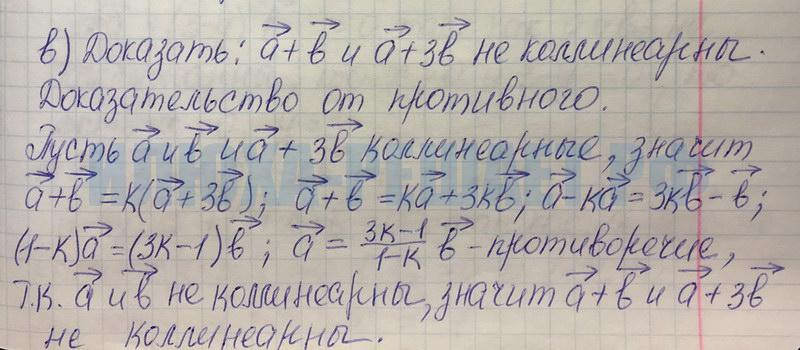 в) Доказать: a⃗+b⃗ и a⃗+3b⃗ не коллинеарны.
Доказательство от противного.
Пусть a⃗ и b⃗ и a⃗+3b⃗ коллинеарные, значит
a⃗+b⃗=k(a⃗+3b⃗); a⃗+b⃗=ka⃗+3kb⃗; a⃗-ka⃗=3kb⃗-b⃗;
(1-k)a⃗=(3k-1)b⃗; a⃗=\frac{3k-1}{1-k}b⃗ - противоречие,
т.к. a⃗ и b⃗ не коллинеарны, значит a⃗+b⃗ и a⃗+3b⃗
не коллинеарны.